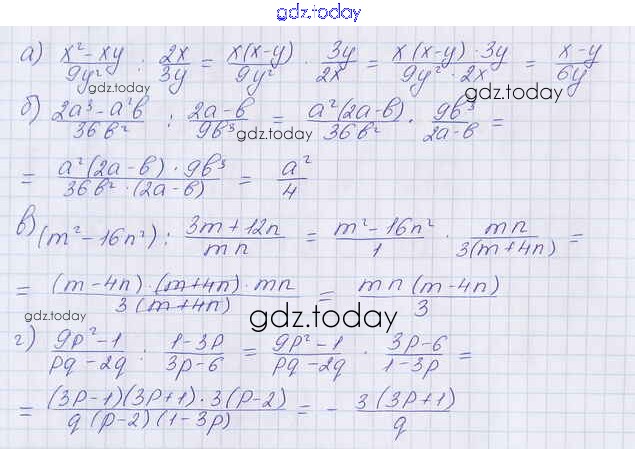 gdz.today
а) (x² - xy)/(9y²) : 2x/3y = x(x-y)/(9y²) · 3y/2x = (x(x-y)·3y)/(9y²·2x) = (x-y)/6y
gdz.today
б) (2a³ - a²b)/(36b²) : (2a-b)/(9b³) = a²(2a-b)/(36b²) · 9b³/(2a-b) =
gdz.today
= (a²(2a-b)·9b³)/(36b²·(2a-b)) = a²/4
в) (m² - 16n²) : (3m+12n)/(mn) = (m² - 16n²)/1 · mn/(3(m+4n)) =
= ((m-4n)·(m+4n)·mn)/(3(m+4n)) = mn(m-4n)/3
gdz.today
gdz.today
г) (9p² - 1)/(pq - 2q) : (1-3p)/(3p-6) = (9p² - 1)/(pq - 2q) · (3p-6)/(1-3p) =
= ((3p-1)(3p+1)·3(p-2))/(q(p-2)(1-3p)) = - 3(3p+1)/q